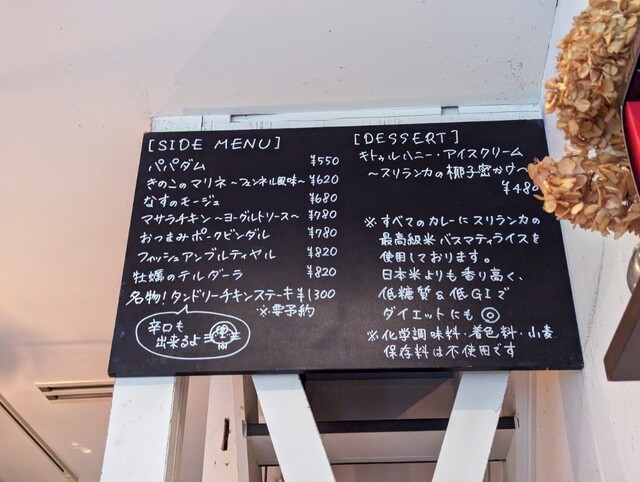 [SIDE MENU]
パパダム ¥550
きのこのマリネ〜フェンネル風味〜 ¥620
なすのモージュ ¥680
マサラチキン〜ヨーグルトソース〜 ¥780
おつまみポークビンダル ¥780
フィッシュアンブルティヤル ¥820
牡蠣のテルダーラ ¥820
名物!タンドリーチキンステーキ ¥1300
※要予約
辛口も
出来るよ
[DESSERT]
キトゥルハニー・アイスクリーム
〜スリランカの椰子蜜がけ〜
¥480
※すべてのカレーにスリランカの
最高級米バスマティライスを
使用しております。
日本米よりも香り高く、
低糖質&低GIで
ダイエットにも◎
※化学調味料・着色料・小麦
保存料は不使用です